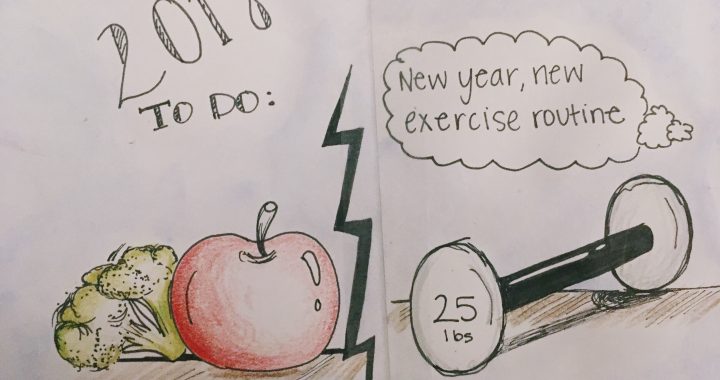 TO DO:
New year, new
exercise routine
25
lbs